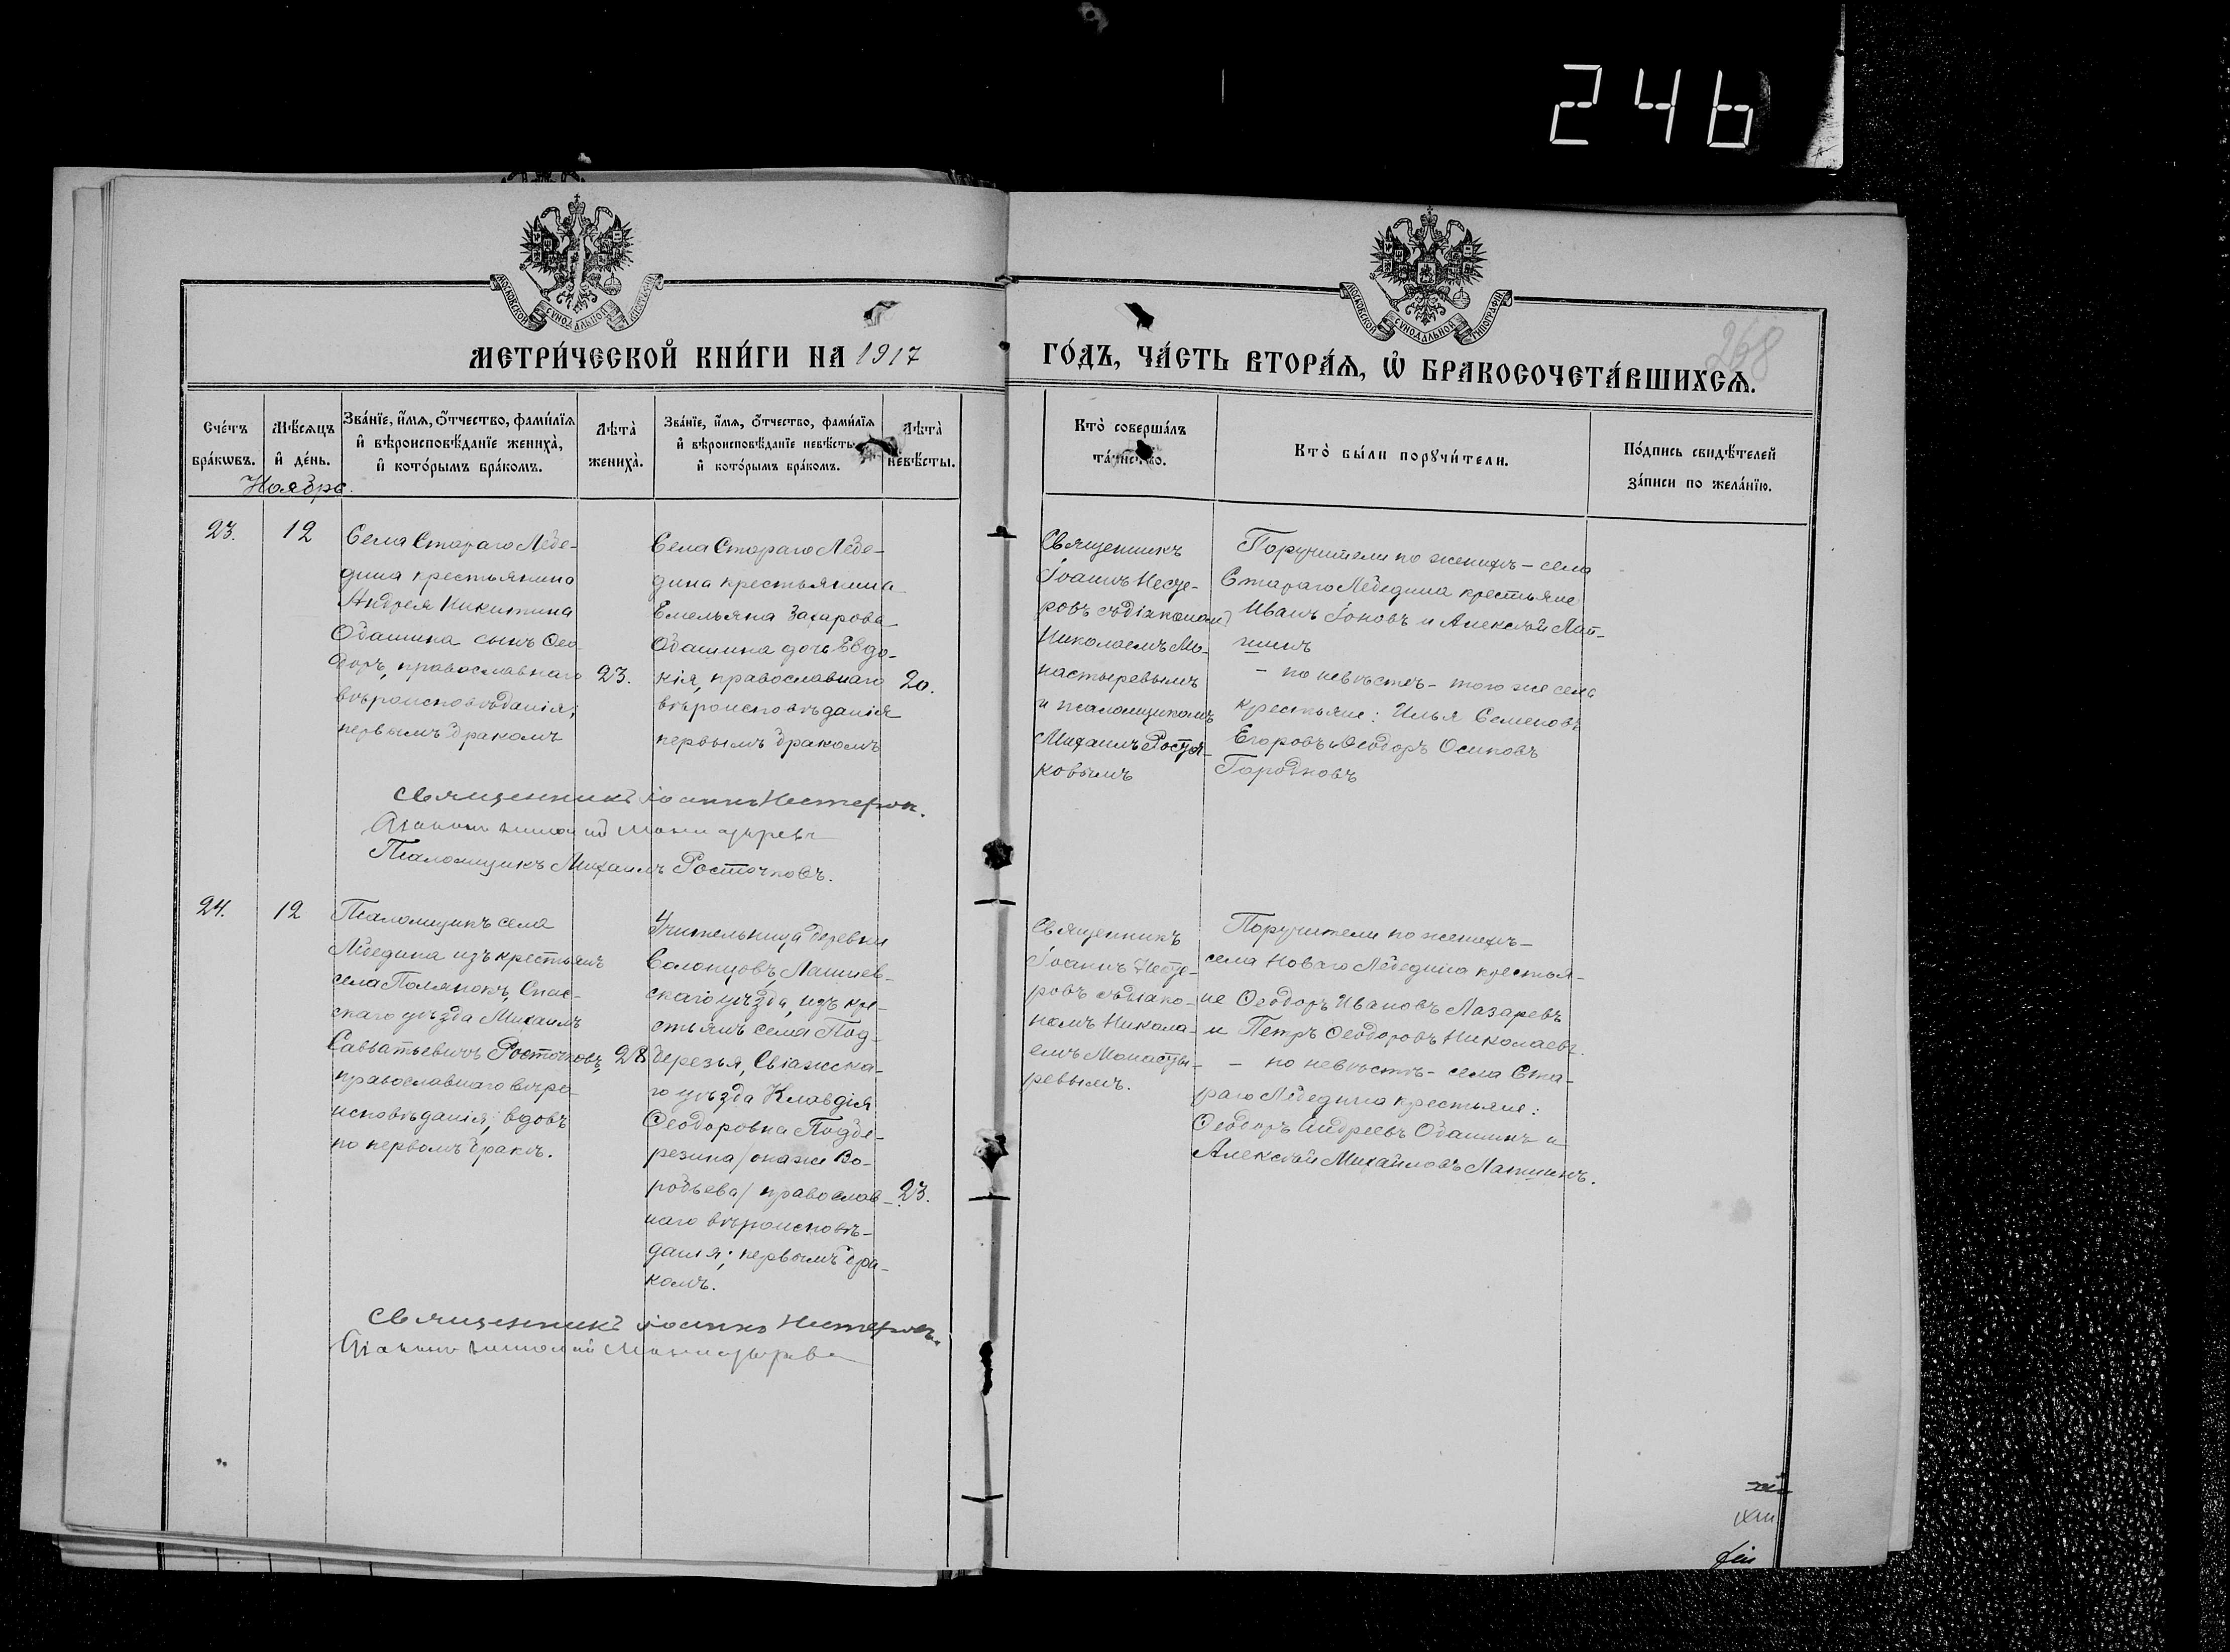 246
МОСКОВСКОЙ СѴНОДАЛЬНОЙ ТИПОГРАФІИ
МОСКОВСКОЙ СѴНОДАЛЬНОЙ ТИПОГРАФІИ
268
МЕТРИ́ЧЕСКОЙ КНИ́ГИ НА 1917
ГО́ДЪ, ЧА́СТЬ ВТОРА́Ѧ, Ѡ БРАКОСОЧЕТА́ВШИХСѦ.
Сче́тъ
бра́кѡвъ.
Мѣ́сѧцъ
и҆ де́нь.
Зва́нїе, и҆́мѧ, ѻ҆́тчество, фами́лїѧ
и҆ вѣроисповѣ́данїе жениха̀,
и҆ кото́рымъ бра́комъ.
Лѣта̀
жениха̀.
Зва́нїе, и҆́мѧ, ѻ҆́тчество, фами́лїѧ
и҆ вѣроисповѣ́данїе невѣ́сты
и҆ кото́рымъ бра́комъ.
Лѣта̀
невѣ́сты.
Кто̀ соверша́лъ
та́инство.
Кто̀ бы́ли порꙋчи́тели.
По́дпись свидѣ́телей
за́писи по жела́нїю.
Ноября.
23.
12
Села Стараго Лебе-
дина крестьянина
Андрея Никитина
Обашина сынъ Ѳео-
доръ, православнаго
вѣроисповѣданія;
первымъ бракомъ
23.
Села Стараго Лебе-
дина крестьянина
Емельяна Захарова
Обашина дочь Евдо-
кія, православнаго
вѣроисповѣданія
первымъ бракомъ
20.
Священникъ
Іоаннъ Несте-
ровъ съ діакономъ
Николаемъ Мо-
настыревымъ
и псаломщикомъ
Михаиломъ Росточ-
ковымъ
Поручители по женихѣ – села
Стараго Лебедина крестьяне
Иванъ Іоновъ и Алексѣй Лап-
шинъ
– по невѣстѣ – того же села
крестьяне: Илья Семеновъ
Егоровъ и Ѳеодоръ Осиповъ
Священникъ Іоаннъ Нестеровъ.
Діаконъ Николай Монастыревъ
Псаломщикъ Михаилъ Росточковъ.
24.
12
Псаломщикъ села
Лебедина изъ крестьянъ
села Полянокъ, Спас-
скаго уѣзда Михаилъ
Савватьевичъ Росточковъ,
православнаго вѣро-
исповѣданія; вдовъ
по первомъ бракѣ.
28
Учительница деревни
Солонцовъ, Лаишев-
скаго уѣзда, изъ кре-
стьянъ села Под-
березья, Свіяжска-
го уѣзда Клавдія
Ѳеодоровна Подбе-
резина /она же Во-
робьева/ православ-
наго вѣроисповѣ-
данія; первымъ бра-
комъ.
23.
Священникъ
Іоаннъ Несте-
ровъ съ діако-
номъ Никола-
емъ Монасты-
ревымъ.
Поручители по женихѣ –
села Новаго Лебедина крестья-
не Ѳеодоръ Ивановъ Лазаревъ
и Петръ Ѳеодоровъ Николаевъ.
– по невѣстѣ – села Ста-
раго Лебедина крестьяне:
Ѳеодоръ Андреевъ Обашинъ и
Алексѣй Михайловъ Лапшинъ.
Священникъ Іоаннъ Нестеровъ.
Діаконъ Николай Монастыревъ